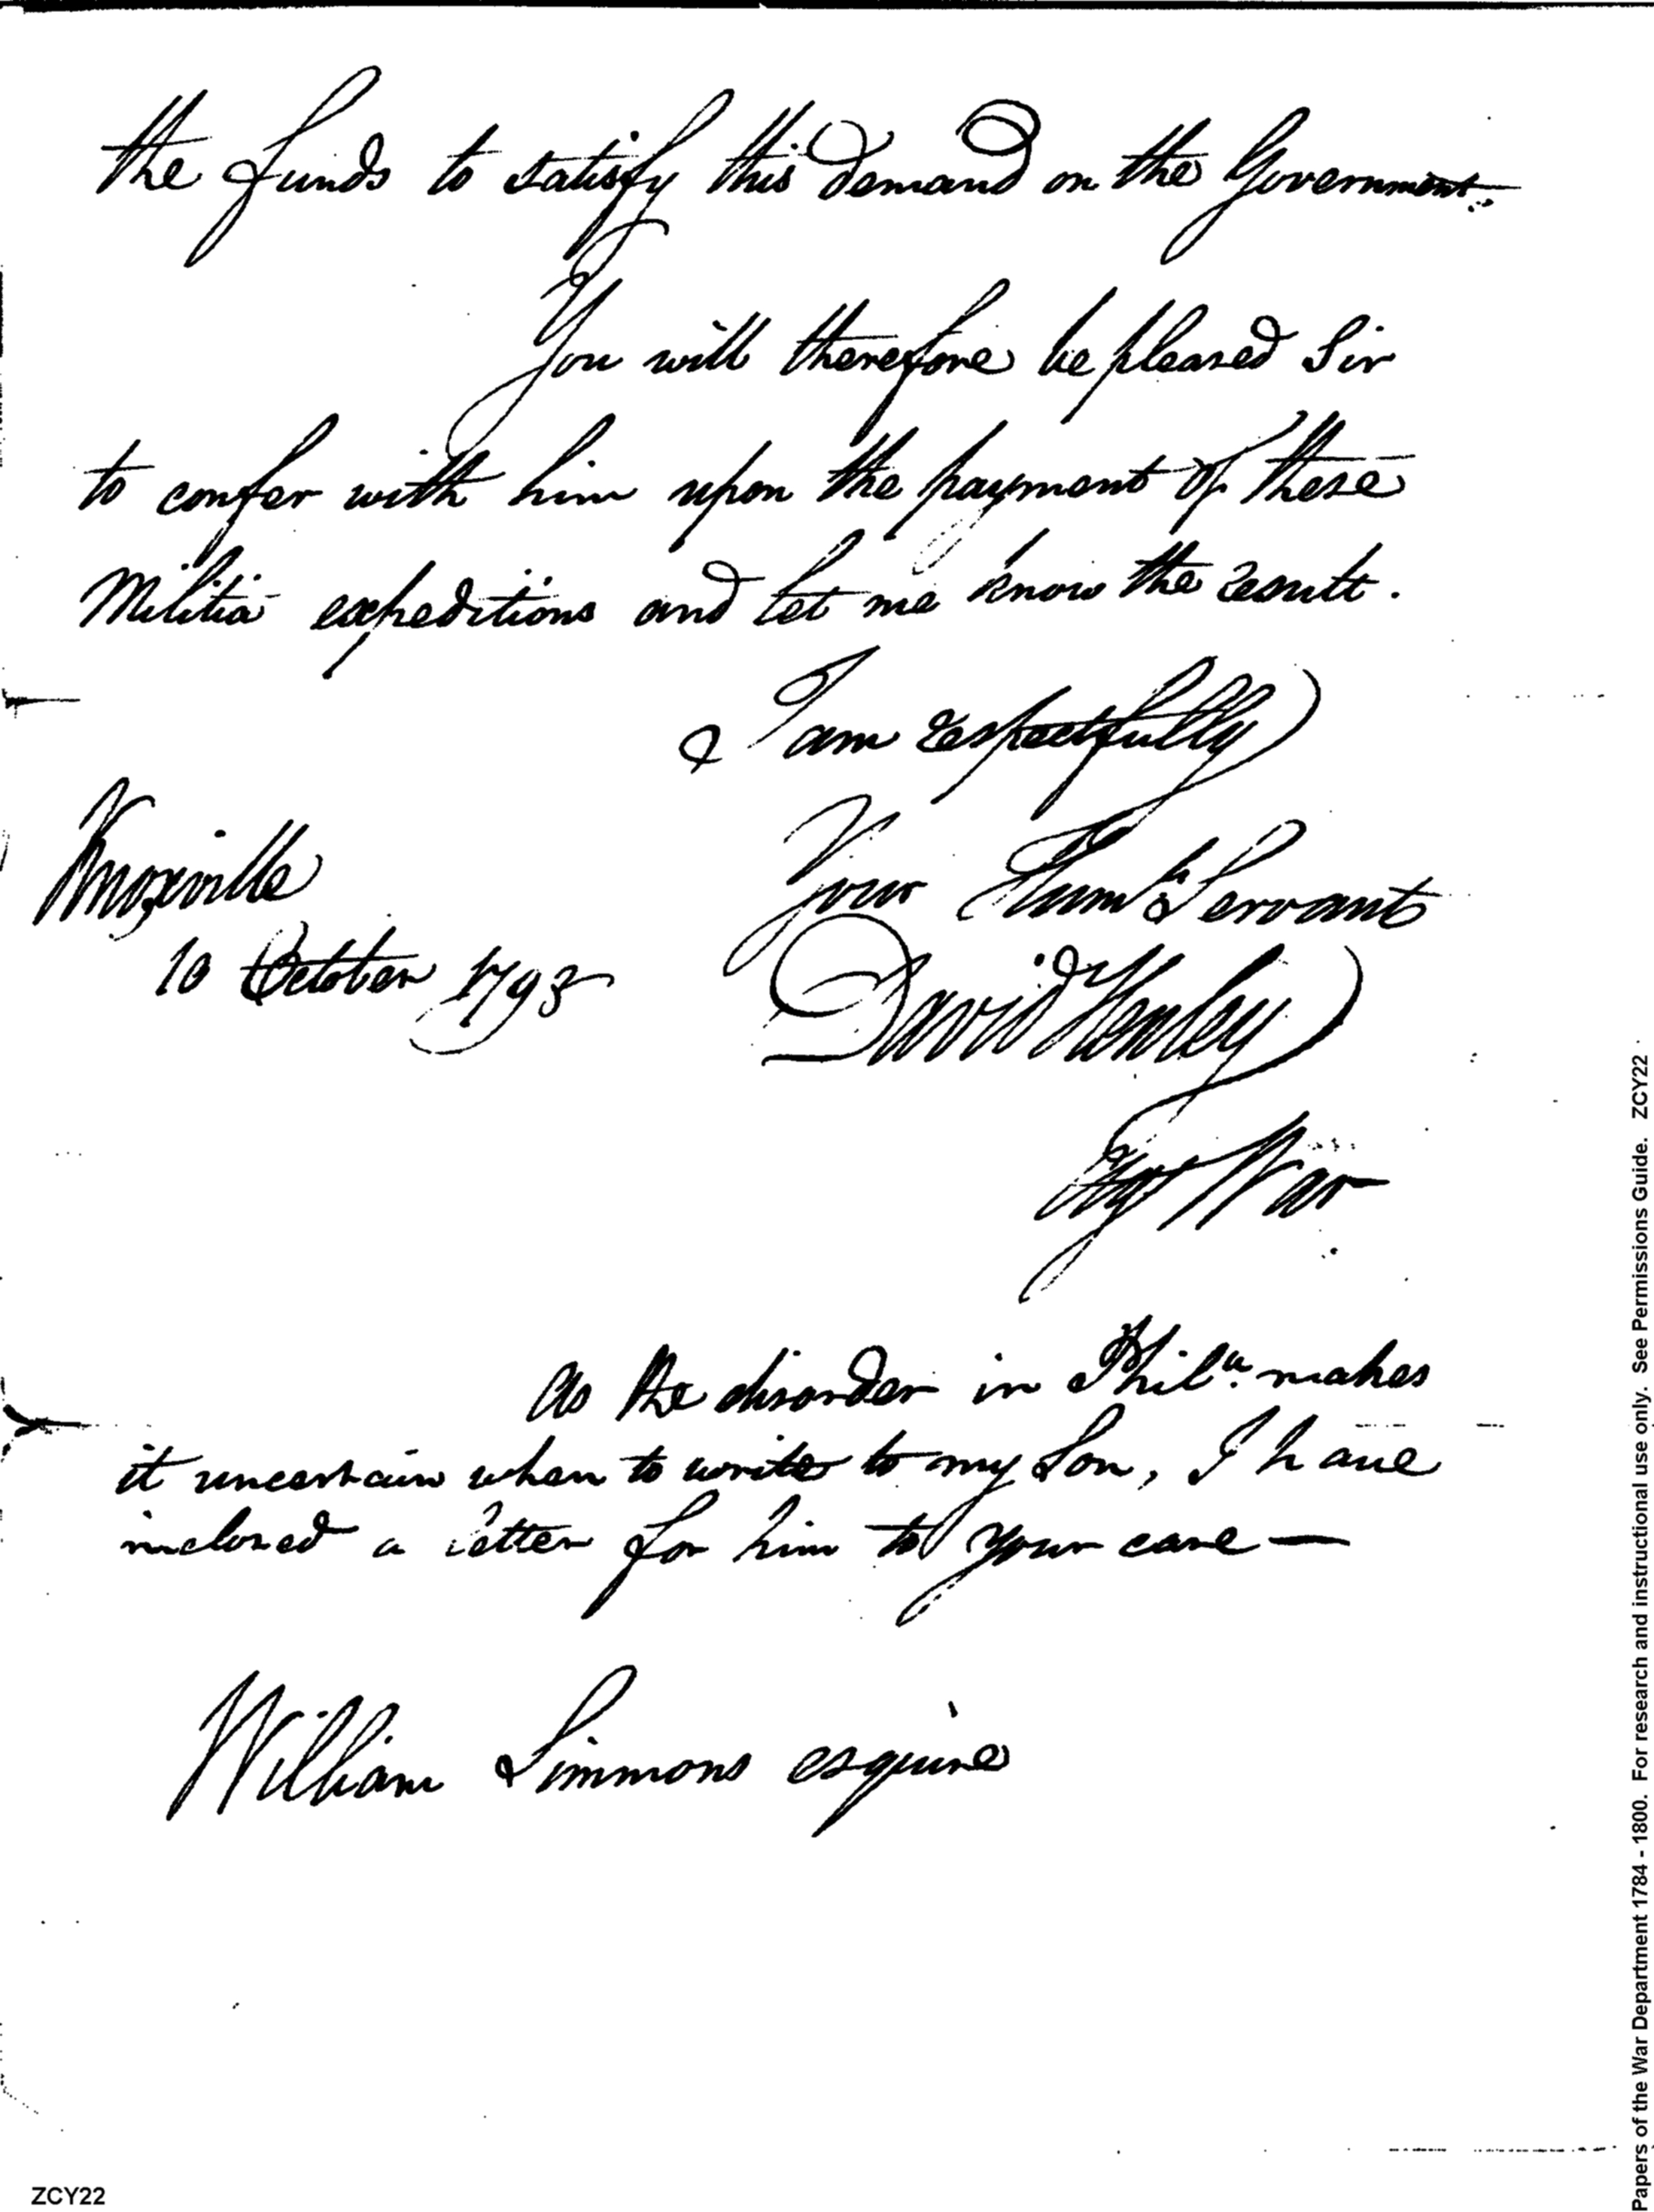 the funds to satisfy this demand on the Government.
You will therefore be pleased Sir
to confer with him upon the payment of these
Militia expeditions and let me know the result.
I am respectfully
Your Humb Servant
Knoxville
10 October 179
David Henley
Agt War
As the disorder in Phila. makes
it uncertain when to write to my Son, I have
inclosed a letter for him to your care —
William Simmons esquire
ZCY22
Papers of the War Department 1784 - 1800. For research and instructional use only. See Permissions Guide. ZCY22